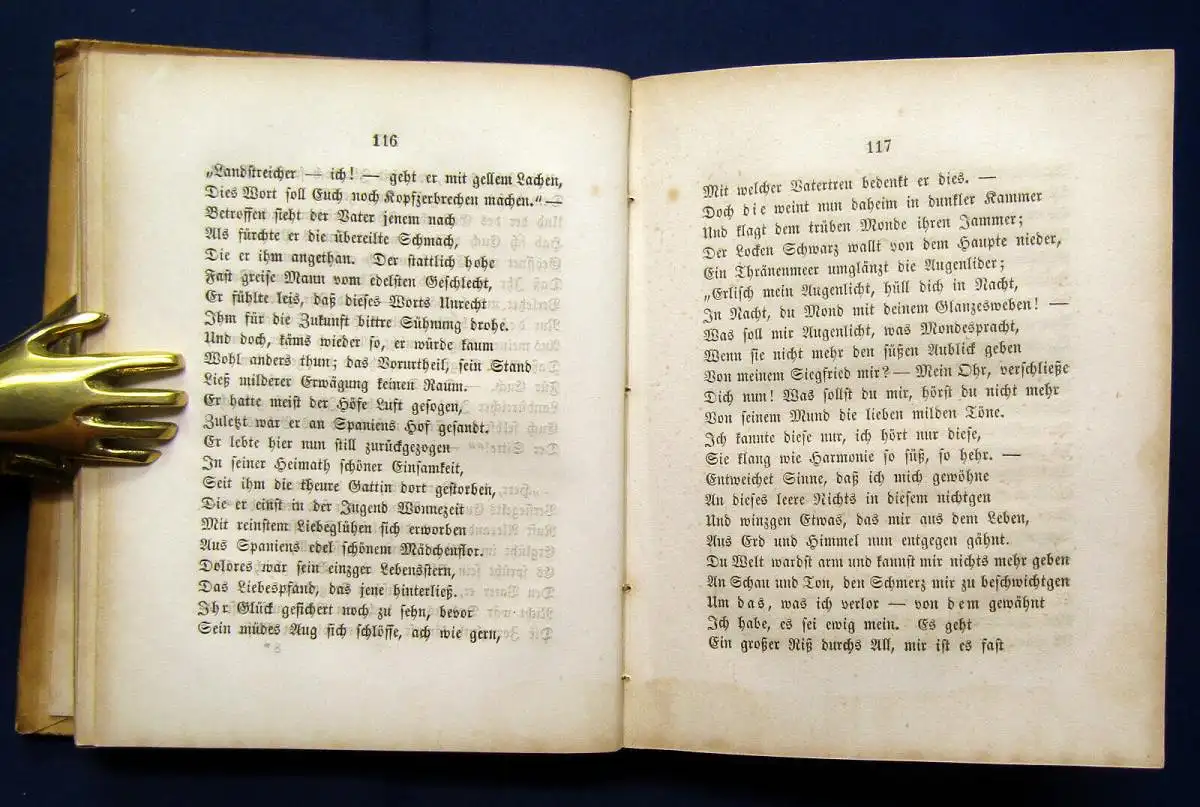 116
„Landstreicher — ich! — geht er mit gellem Lachen,
Dies Wort soll Euch noch Kopfzerbrechen machen.“ —
Betroffen sieht der Vater jenem nach
Als fürchte er die übereilte Schmach,
Die er ihm angethan. Der stattlich hohe
Fast greise Mann vom edelsten Geschlecht,
Er fühlte leis, daß dieses Worts Unrecht
Ihm für die Zukunft bittre Sühnung drohe.
Und doch, käms wieder so, er würde kaum
Wohl anders thun; das Vorurtheil, sein Stand
Ließ milderer Erwägung keinen Raum.
Er hatte meist der Höfe Luft gesogen,
Zuletzt war er an Spaniens Hof gesandt.
Er lebte hier nun still zurückgezogen
In seiner Heimath schöner Einsamkeit,
Seit ihm die theure Gattin dort gestorben,
Die er einst in der Jugend Wonnezeit
Mit reinstem Liebeglühen sich erworben
Aus Spaniens edel schönem Mädchenflor.
Dolores war sein einzger Lebensstern,
Das Liebespfand, das jene hinterließ.
Ihr Glück gesichert noch zu sehn, bevor
Sein müdes Aug sich schlösse, ach wie gern,
8*
117
Mit welcher Vatertreu bedenkt er dies. —
Doch die weint nun daheim in dunkler Kammer
Und klagt dem trüben Monde ihren Jammer;
Der Locken Schwarz wallt von dem Haupte nieder,
Ein Thränenmeer umglänzt die Augenlider;
„Erlisch mein Augenlicht, hüll dich in Nacht,
In Nacht, du Mond mit deinem Glanzesweben! —
Was soll mir Augenlicht, was Mondespracht,
Wenn sie nicht mehr den süßen Anblick geben
Von meinem Siegfried mir? — Mein Ohr, verschließe
Dich nun! Was sollst du mir, hörst du nicht mehr
Von seinem Mund die lieben milden Töne.
Ich kannte diese nur, ich hört nur diese,
Sie klang wie Harmonie so süß, so hehr. —
Entweichet Sinne, daß ich mich gewöhne
An dieses leere Nichts in diesem nichtgen
Und winzgen Etwas, das mir aus dem Leben,
Aus Erd und Himmel nun entgegen gähnt.
Du Welt wardst arm und kannst mir nichts mehr geben
An Schau und Ton, den Schmerz mir zu beschwichtgen
Um das, was ich verlor — von dem gewähnt
Ich habe, es sei ewig mein. Es geht
Ein großer Riß durchs All, mir ist es fast